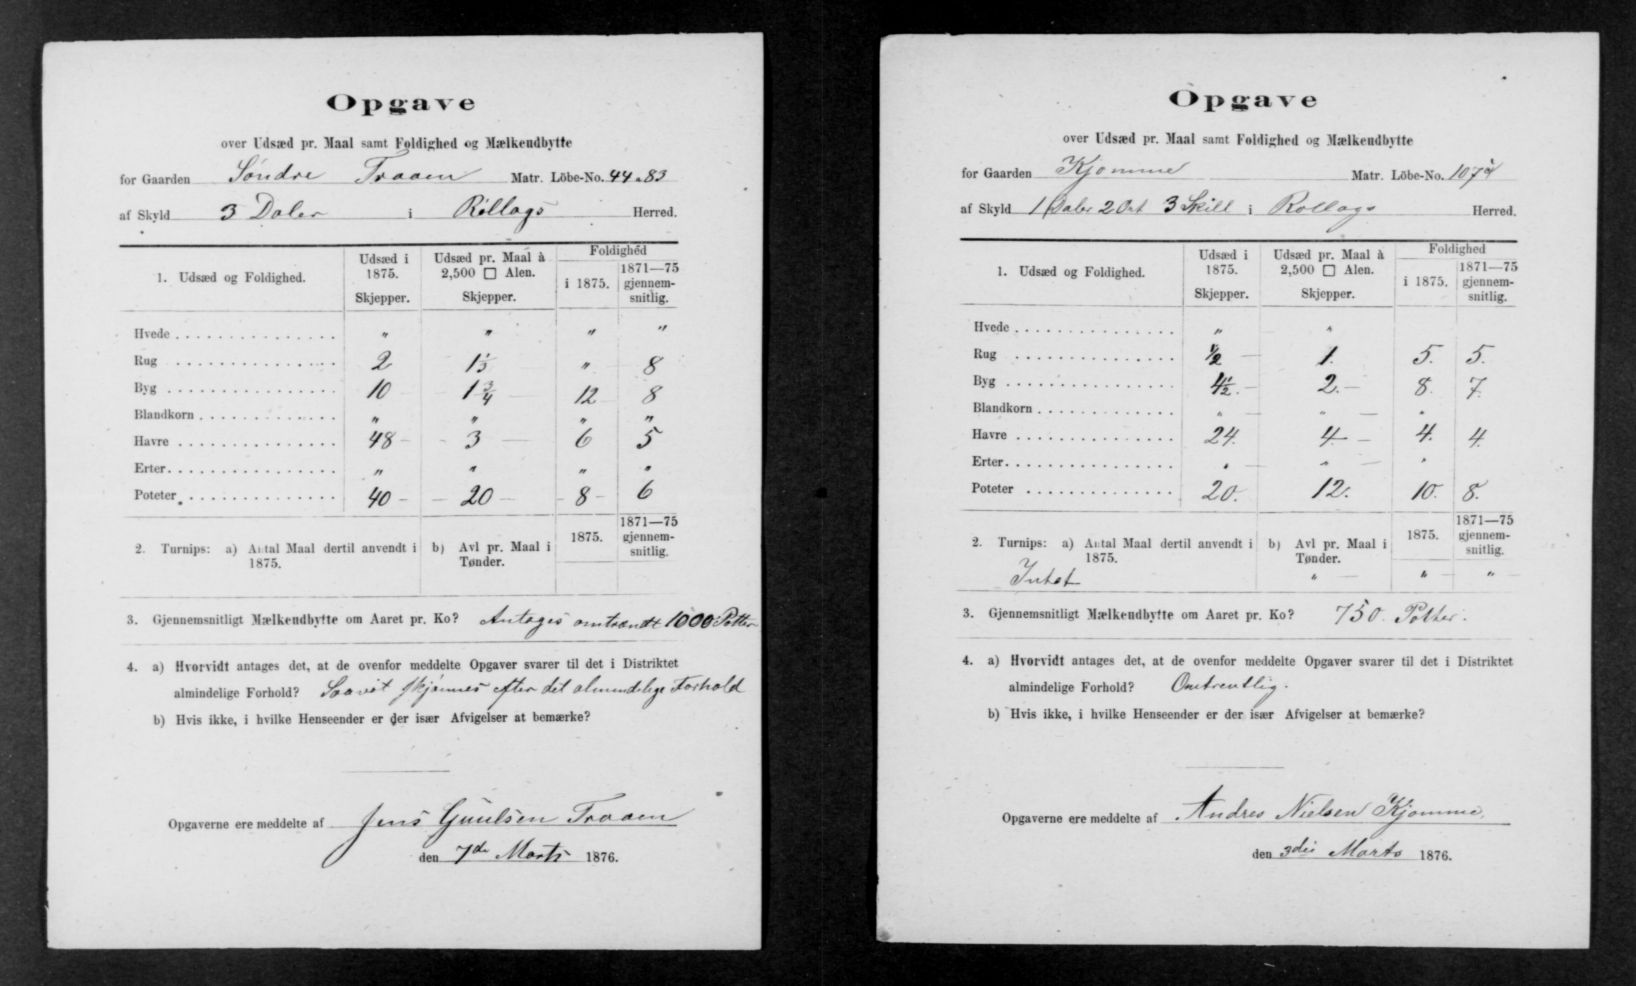 Opgave
over Udsæd pr. Maal samt Foldighed og Mælkeudbytte
for Gaarden Söndre Traaen Matr. Löbe-No. 44 a 83
af Skyld 3 Daler i Rollags Herred.
1. Udsæd og Foldighed.
Udsæd i 1875. Skjepper.
Udsæd pr. Maal à 2,500 □ Alen. Skjepper.
Foldighed
i 1875.
1871—75 gjennem-snitlig.
Hvede . . . . . . . . . . . . . . . „ „ „ „
Rug . . . . . . . . . . . . . . . 2 1⅓ „ 8
Byg . . . . . . . . . . . . . . . 10 1 3/4 12 8
Blandkorn . . . . . . . . . . . . . „ „ „ „
Havre . . . . . . . . . . . . . . 48 3 6 5
Erter. . . . . . . . . . . . . . . „ „ „ „
Poteter . . . . . . . . . . . . . . 40 20 8 6
2. Turnips: a) Antal Maal dertil anvendt i 1875.
b) Avl pr. Maal i Tønder.
1875.
1871—75 gjennem-snitlig.
3. Gjennemsnitligt Mælkeudbytte om Aaret pr. Ko? Antages omtrændt 1000 Potter
4. a) Hvorvidt antages det, at de ovenfor meddelte Opgaver svarer til det i Distriktet
almindelige Forhold? Saavit skjönnes efter det almindelige Forhold
b) Hvis ikke, i hvilke Henseender er der især Afvigelser at bemærke?
Opgaverne ere meddelte af Jens Guulsen Traaen
den 7de Marts 1876.
Opgave
over Udsæd pr. Maal samt Foldighed og Mælkeudbytte
for Gaarden Kjomme Matr. Löbe-No. 107
af Skyld 1 Daler 2 Ort 3 Skill i Rollags Herred.
1. Udsæd og Foldighed.
Udsæd i 1875. Skjepper.
Udsæd pr. Maal à 2,500 □ Alen. Skjepper.
Foldighed
i 1875.
1871—75 gjennem-snitlig.
Hvede . . . . . . . . . . . . . . . „ „
Rug . . . . . . . . . . . . . . . ½ 1. 5. 5.
Byg . . . . . . . . . . . . . . . 4½. 2. 8. 7.
Blandkorn . . . . . . . . . . . . . „ „ „
Havre . . . . . . . . . . . . . . 24. 4 4. 4
Erter. . . . . . . . . . . . . . . „ „ „
Poteter . . . . . . . . . . . . . . 20. 12. 10. 8.
2. Turnips: a) Antal Maal dertil anvendt i 1875.
b) Avl pr. Maal i Tønder.
1875.
1871—75 gjennem-snitlig.
Intet „ „ „
3. Gjennemsnitligt Mælkeudbytte om Aaret pr. Ko? 750. Potter.
4. a) Hvorvidt antages det, at de ovenfor meddelte Opgaver svarer til det i Distriktet
almindelige Forhold? Omtrentlig.
b) Hvis ikke, i hvilke Henseender er der især Afvigelser at bemærke?
Opgaverne ere meddelte af Andres Nielsen Kjomme.
den 3die Marts 1876.